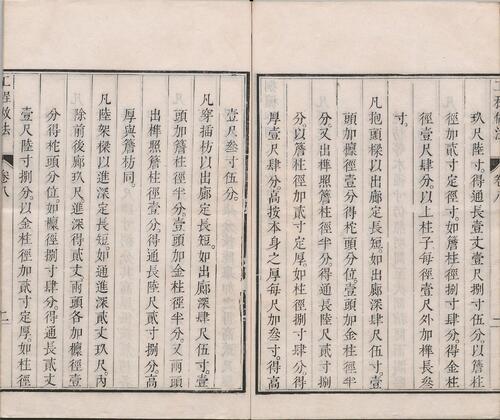 玖尺陸寸得通長壹丈壹尺玖寸伍分以簷
徑加貳寸定徑寸如簷柱徑捌寸肆分得金柱
徑壹尺肆分以上柱子每徑壹尺外加榫長叁
寸
凡抱頭樑以出廊定長短如出廊深肆尺伍寸壹
頭加檁徑壹分得柁頭分位壹頭加金柱徑半
分又出榫照簷柱徑半分得通長陸尺貳寸捌
分以簷柱徑加貳寸定厚如柱徑捌寸肆分得
厚壹尺肆分高按本身之厚每尺加叁寸得高
壹尺叁寸伍分
凡穿插枋以出廊定長短如出廊深肆尺伍寸壹
頭加簷柱徑半分壹頭加金柱徑半分又兩頭
出榫照簷柱徑壹分得通長陸尺貳寸捌分高
厚與簷枋同
凡陸架樑以進深定長短如通進深貳丈玖尺內
除前後廊玖尺進深得貳丈兩頭各加檁徑壹
分得柁頭分位如檁徑捌寸肆分得通長貳丈
壹尺陸寸捌分以金柱徑加貳寸定厚如柱徑
工程做法
卷八